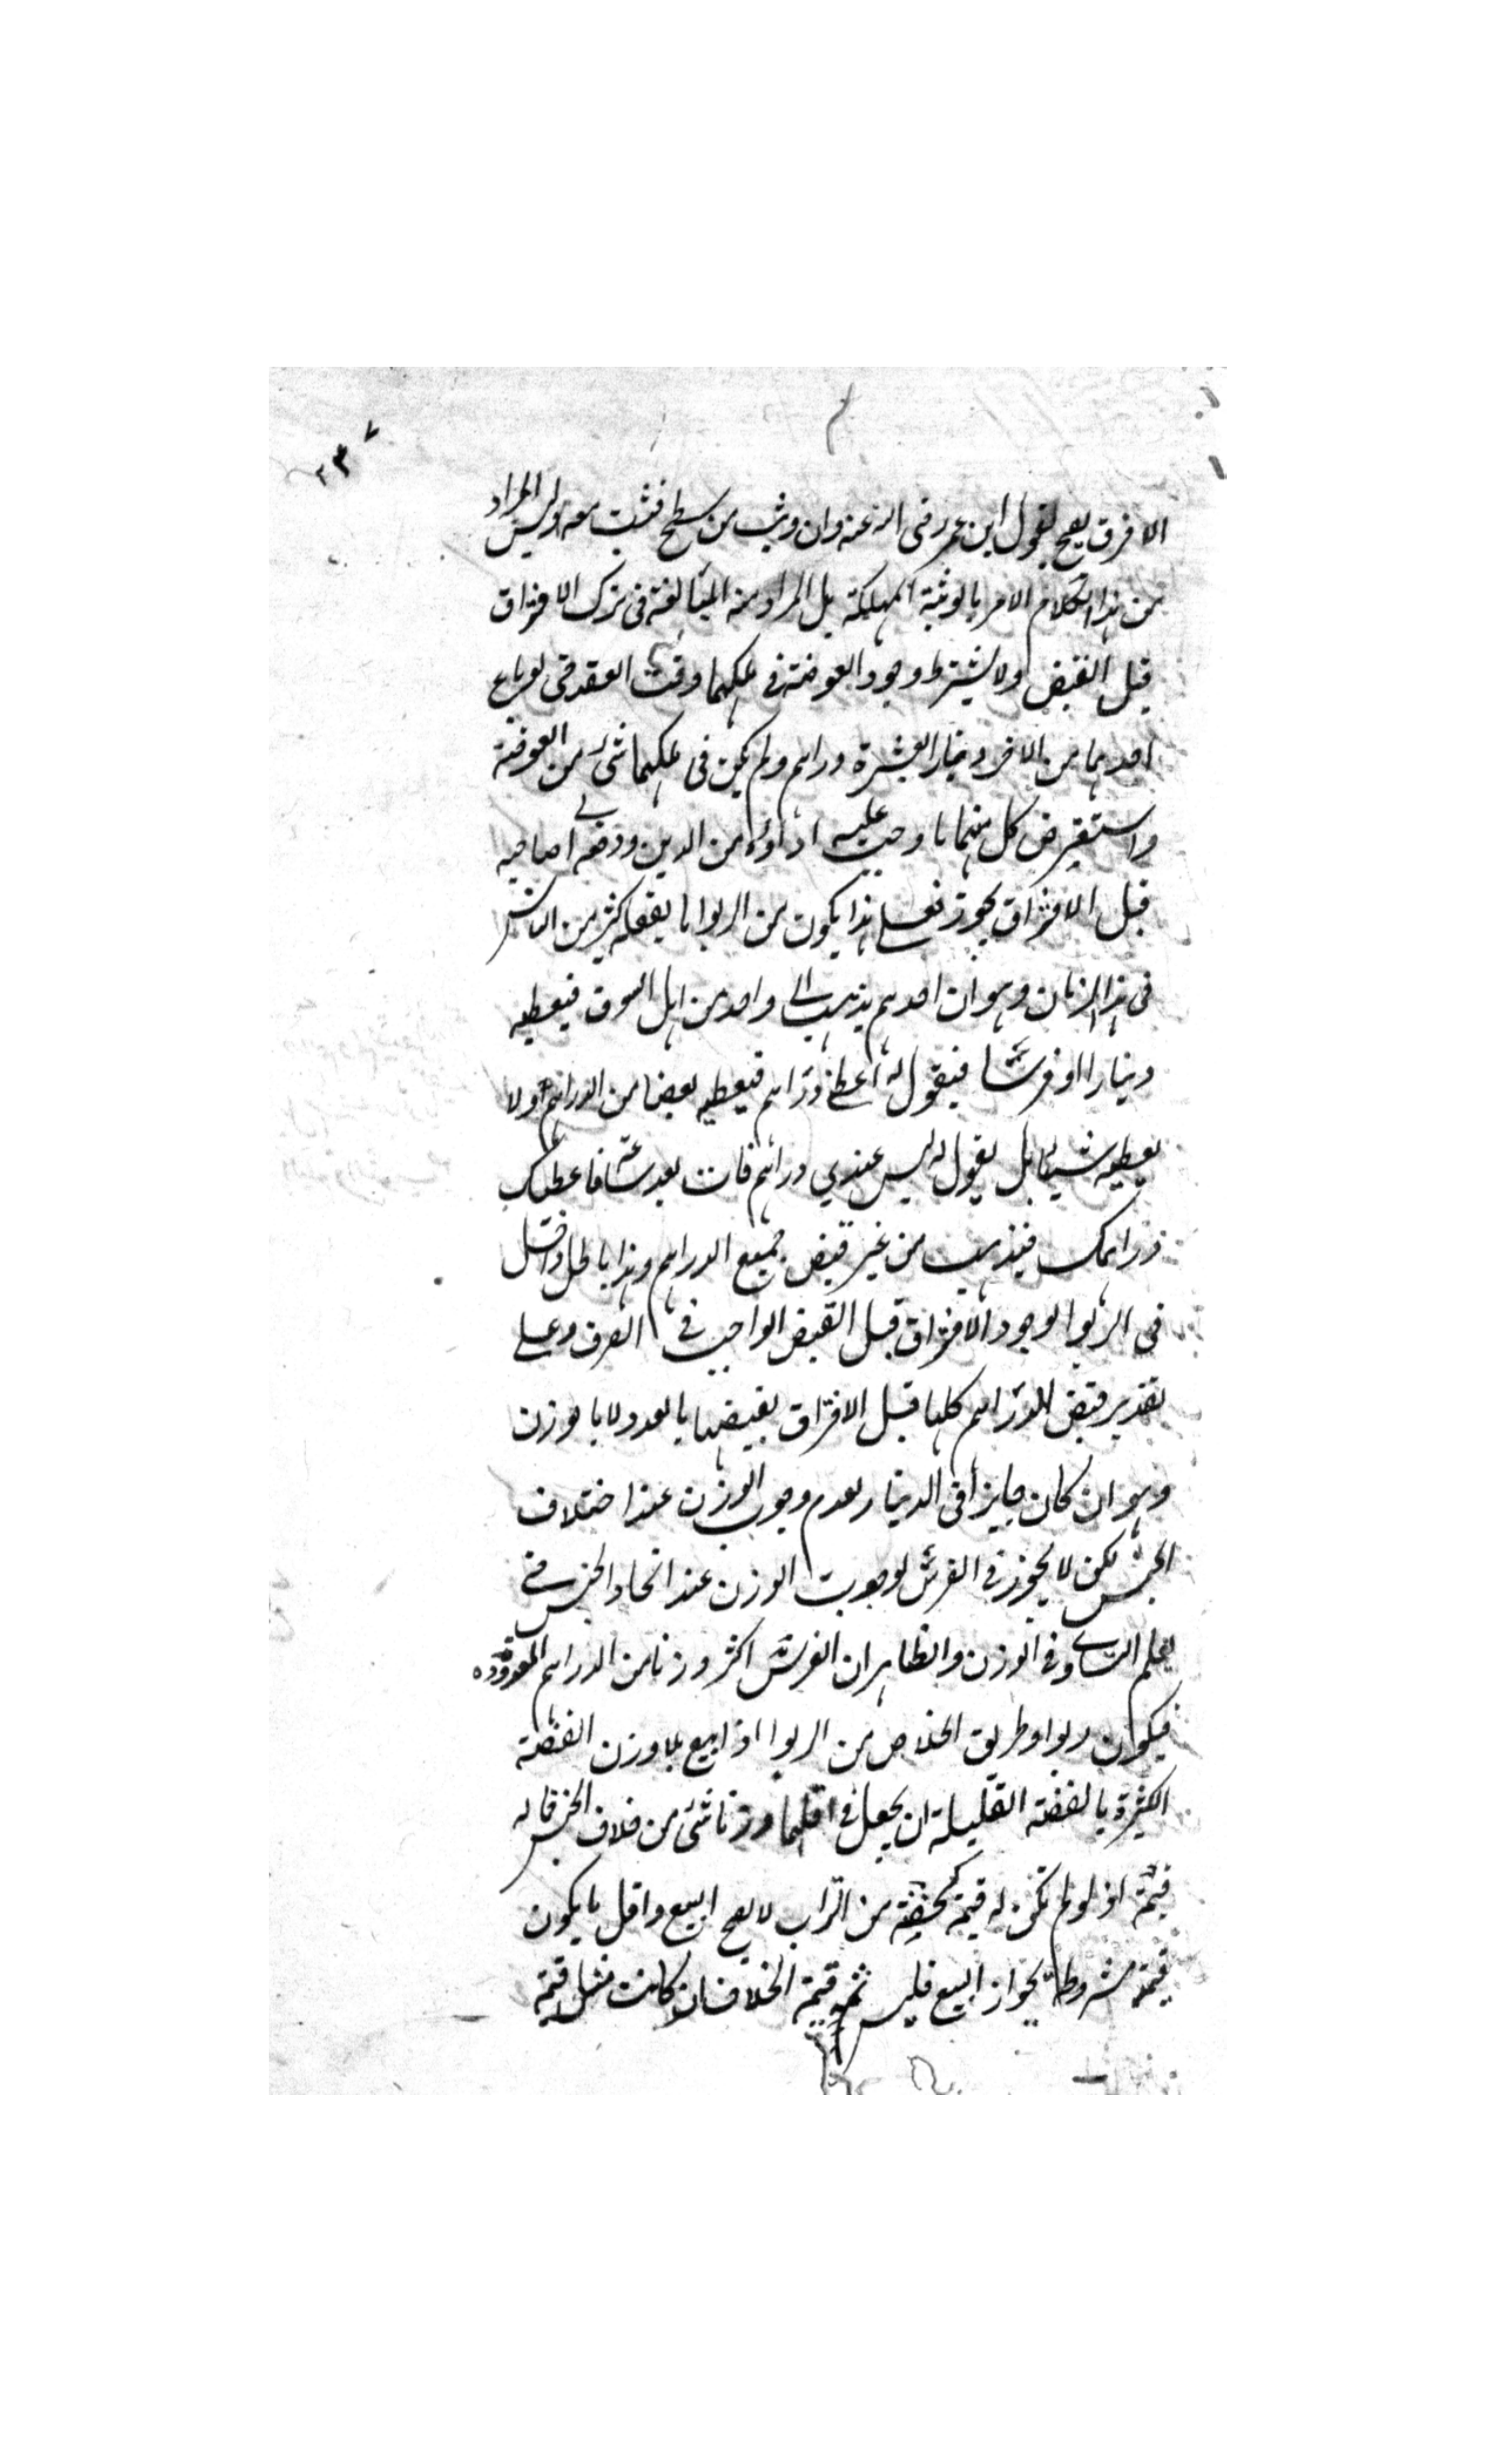 الاخر ق يصح لقول ابن عمر رضى الله عنه وان وثب من سطح فثب معه وليس المراد
من هذا الكلام الامر بالوثبة المهلكة بل المراد منه المبالغة فى ترك الافتراق
قبل القبض ولا يشترط وجود العوضين فى ملكهما وقت العقد حتى لو باع
احدهما من الاخر دينارا بعشرة دراهم ولم يكن فى ملكهما شئ من العوضين
واستقرض كل منهما ما وجب عليه اداؤه من الدين ودفعه الى صاحبه
قبل الافتراق يجوز فعلى هذا يكون من الربوا ما يفعله كثير من الناس
فى هذا الزمان وهو ان احدهم يذهب الى واحد من اهل السوق فيعطيه
دينارا او قرشا فيقول له اعطنى دراهم فيعطيه بعضا من الدراهم او لا
يعطيه شيئا بل يقول له ليس عندي دراهم فات بعد ساعة فاعطيك
دراهمك فيذهب من غير قبض جميع الدراهم وهذا باطل داخل
فى الربوا لوجود الافتراق قبل القبض الواجب فى الصرف وعلى
تقدير قبض الدراهم كلها قبل الافتراق يقبضها بالعدد لا بالوزن
وهو ان كان جايزا فى الدينار لعدم وجوب الوزن عند اختلاف
الجنس لكن لا يجوز فى القرش لوجوب الوزن عند اتحاد الجنس حتى
يعلم التساوى فى الوزن والظاهر ان القرش اكثر وزنا من الدراهم المعدودة
فيكون ربوا وطريق الخلاص من الربوا اذا بيع بلا وزن الفضة
الكثيرة بالفضة القليلة ان يجعل فى اقلهما وزنا شئ من خلاف الجنس فما له
قيمة اذ لو لم تكن له قيمة كحفنة من التراب لا يصح البيع واقل ما يكون
قيمة مشروطة لجواز البيع فليس ثمه قيمة الخلاف ان كانت مثل قيمة